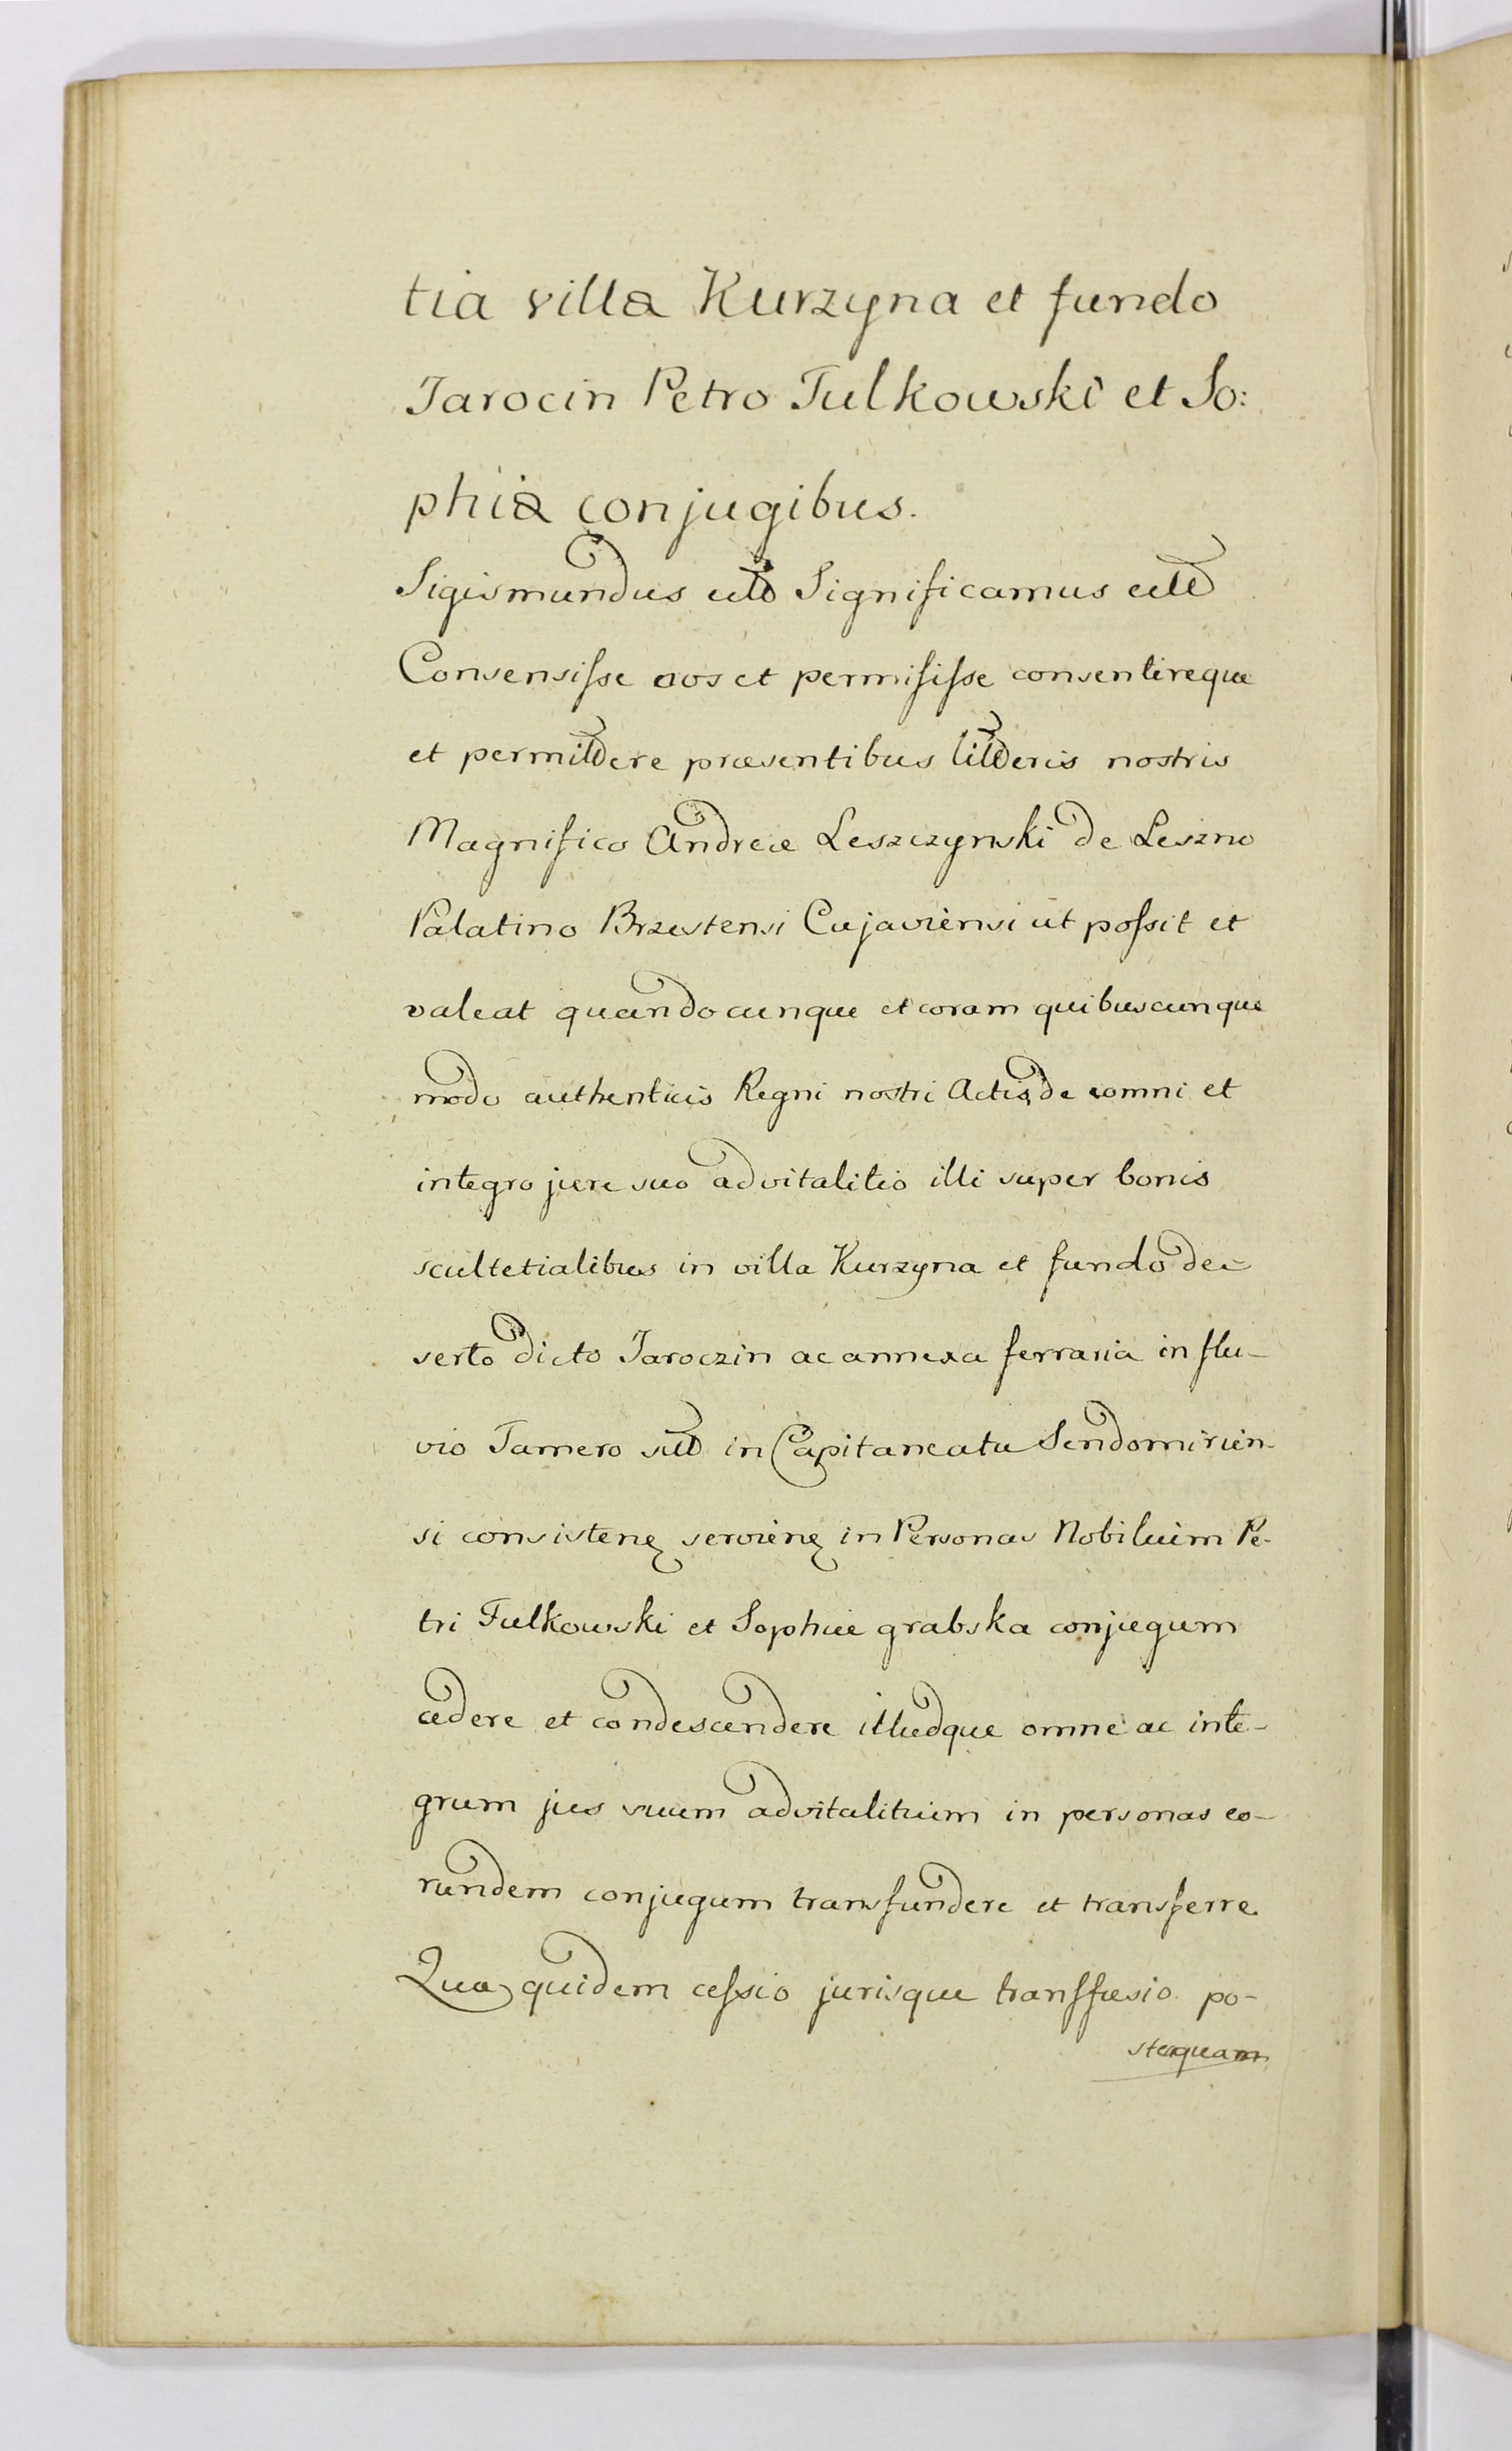 tia villæ Kurzyna et fundo
Jarocin Petro Tulkowski et So:
phiæ conjugibus.
Sigismundus etc Significamus etc
Consensisse nos et permisisse consentireque
et permittere præsentibus litteris nostris
Magnifico Andreæ Leszczynski de Leszno
Palatino Brzestensi Cujaviensi ut possit et
valeat quandocunque et coram quibuscunque
modo authenticis Regni nostri Actis, de omni et
integro jure suo advitalitio illi super bonis
scultetialibus in villa Kurzyna et fundo de-
serto dicto Jaroczin ac annexa ferraria in flu-
vio Tamero sitt in Capitaneatu Sendomirien-
si consisten servien in Personas Nobilium Pe-
tri Tulkowski et Sophiæ grabska conjugum
cedere et condescendere illudque omne ac inte-
grum jus suum advitalitium in personas eo-
rundem conjugum transfundere et transferre.
Quæ quidem cessio jurisque transfusio po-